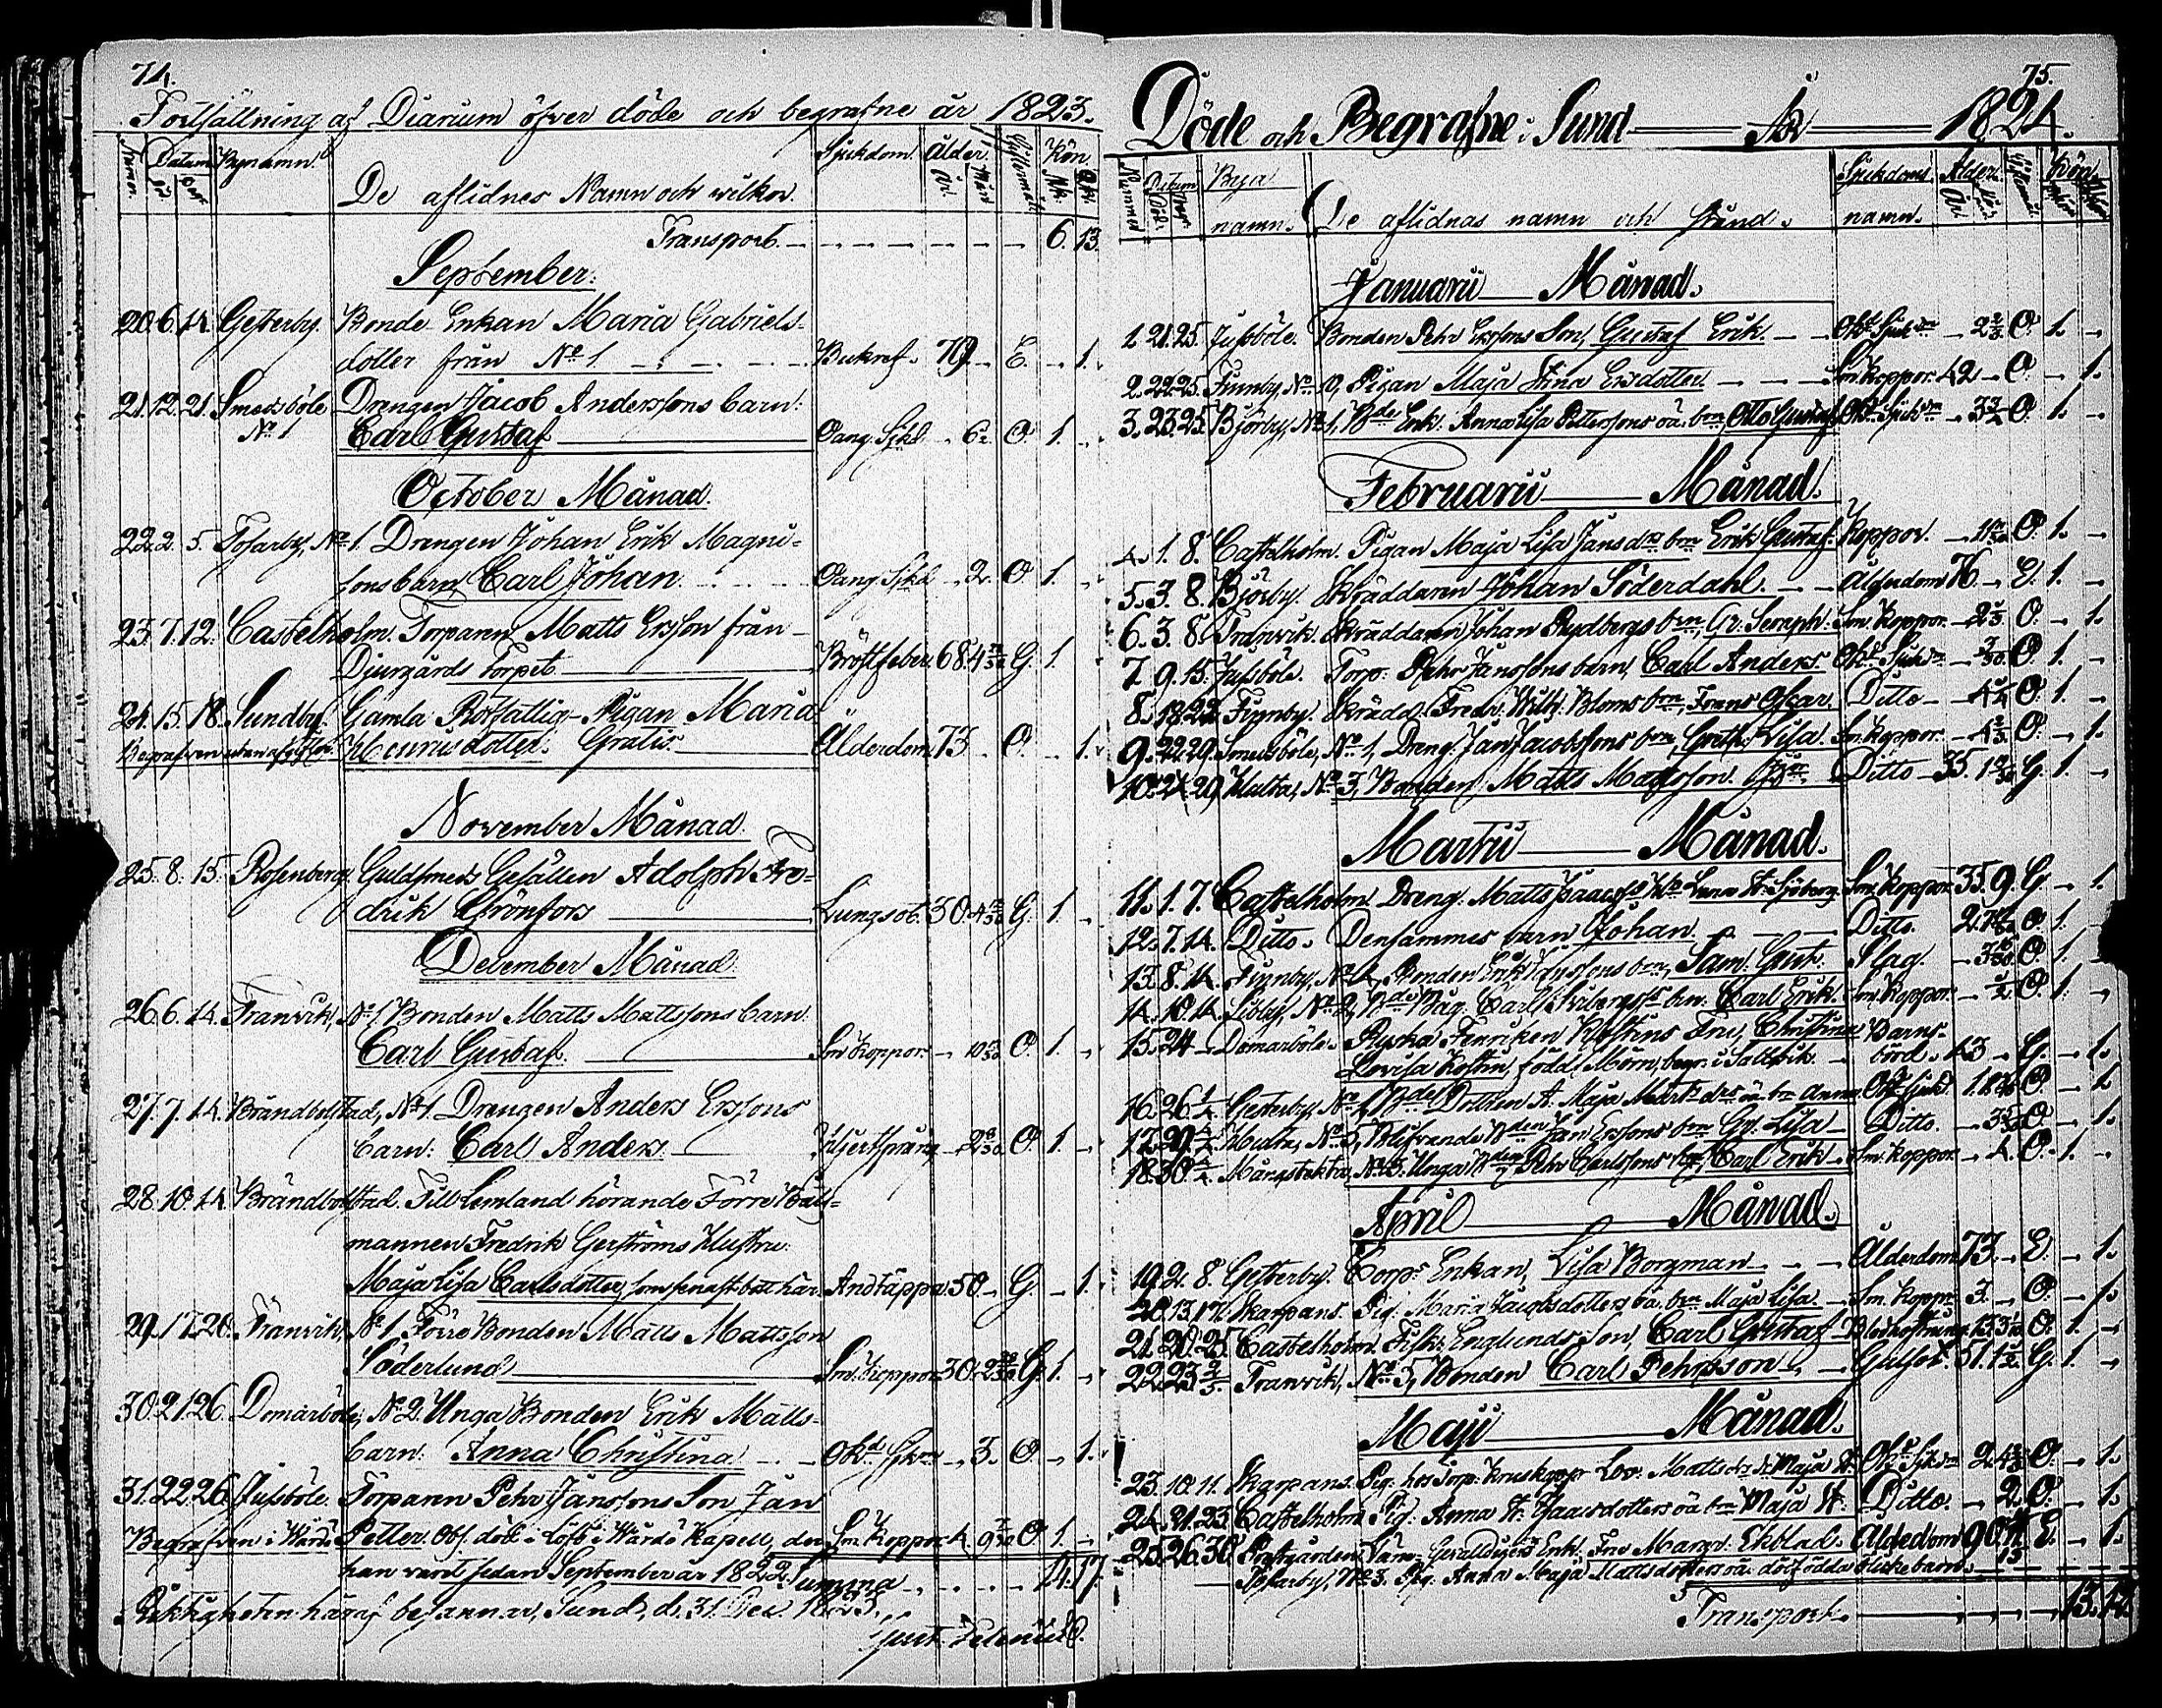 74.
Fortsättning af Diarium öfver döde och begrafne år 1823.
Numer. Datum Byanamn. De aflidnes Namn och wilkor. Sjukdom. Ålder. År. Mån. Kön. Mk. Qk.
Transport. 6. 13.
September.
20. 6. 14. Gesterby. Bonde-Enkan Maria Gabriels-
dotter från No 1 Bukref. 79 E. 1.
21. 12. 21. Smedsböle Drengen Jacob Anderssons barn:
No 1 Carl Gustaf Oang. Sjkd 6 O. 1.
October Månad.
22. 2. 5. Tosarby, No 1. Drengen Johan Erik Magni-
sons barn Carl Johan. Oang. Sjkd 2. O. 1.
23. 7. 12. Castelholm. Torparen Matts Ersson från
Djurgårds Torpet Bröstfeber. 68. 4 G. 1.
24. 15. 18. Sundby. Gamla Rotfattig-Pigan Maria
Begrafven utan afgift Henriksdotter. Gratis. Ålderdom. 73 O. 1.
November Månad.
25. 8. 15. Rosenberg. Guldsmeds Gesällen Adolph Fre-
drik Grönfors Lungsot. 30. 4 G. 1.
December Månad.
26. 6. 14. Tranvik, No 1. Bonden Matts Mattssons barn
Carl Gustaf. Sm. Koppor. 10 O. 1.
27. 7. 14. Brändbolstad, No 1. Drengen Anders Erssons
barn: Carl Anders. Hjertsprång 2 O. 1.
28. 10. 14. Brändbolstad. Till Lemland hörande Förre Båts-
mannen Fredrik Gerströms Hustru
Maja Lisa Carlsdotter, som senast bott här. Andtäppa. 50 G. 1.
29. 17. 20. Tranvik, No 1. Förre Bonden Matts Mattsson
Söderlund Sm. Koppor. 30. 2 G. 1.
30. 21. 26. Domarböle, No 2. Unga Bonden Erik Matts-
barn: Anna Christina Okd. Sjkm 3. O. 1.
31. 22. 26. Jussböle. Torparen Pehr Janssons Son Jan
Begrafven i Wårdö Petter. Obs. död i Löfö i Wårdö Kapell, der Sm. Koppor 4. 9 O. 1.
han varit sedan September år 1822. Summa 14. 17.
Riktigheten häraf besannar, Sund, d. 31. Dec. 1823.
Gust.
75.
Döde och Begrafne i Sund År 1824.
Nummer Datum Död. Begr. Bya namn. De aflidnas namn och stånd. Sjukdoms namn. Ålder. År. Kön
Januarii Månad.
1. 21. 25. Jussböle. Bonden Pehr Erssons Son, Gustaf Erik. Okd Sjukdm 2 2/3 O. 1.
2. 22. 25. Finnby, No 10, Pigan Maja Stina Ersdotter Sm. Koppor. 42 O. 1.
3. 23. 25. Björby, No 1, Bde Enk. Anna Lisa Pettersons oä. bn Otto Gustaf Okd Sjukdm 3 O. 1.
Februarii Månad.
4. 1. 8. Castelholm. Pigan Maja Lisa Jansdrs bn Erik Gustaf. Koppor. 11 O. 1.
5. 3. 8. Björby. Skräddaren Johan Söderdahl. Ålderdom 76. E. 1.
6. 3. 8. Tranvik. Skräddaren Johan Rydbergs bn, Gr. Seraph. Sm. Koppor. 2 O. 1.
7. 9. 15. Jussböle. Torp. Pehr Janssons barn, Carl Anders. Okd Sjukdm O. 1.
8. 18. 22. Finnby. Skrädd. Fredr. Wilh. Bloms bn, Frans Oscar. Ditto 4 O. 1.
9. 22. 29. Smedsböle, No 1, Dreng. Jan Jacobssons bn, Greth. Lisa. Sm. Koppor. 4 O. 1.
10. 24. 29. Hulta, No 3, Bonden Matts Matsson. Ditto 35. 1 G. 1.
Martii Månad.
11. 1. 7. Castelholm. Dreng. Matts Isacss Lena St. Sjöberg. Sm. Koppor. 35. 9. G. 1.
12. 7. 14. Ditto. Densammes barn Johan Ditto. 2. O. 1.
13. 8. 14. Finnby, No 4, Bonden Erik Erssons bn, Sam. Gust. Slag. 3 O. 1.
14. 10. 14. Sibby, No 2, Bde Måg. Carl bn. Carl Erik. Sm. Koppor. O. 1.
15. 24 Domarböle. Ryska Fenriken Kostins Fru, Christina Barns-
Lovisa Kostin, född Morn, begr. i Saltvik. börd. 43 G. 1.
16. 26. Gesterby, No 1, Bdes Dottren A. Maja Mattsdrs oä. bn Anna Okd Sjukd. 1. O. 1.
17. 29. Hulta, No 5, Blifvande Bden Jan Erssons bn Gr. Lisa Ditto. 3 O. 1.
18. 30. Mångstekta, No 3. Unga Bden Pehr Carlssons bn, Carl Erik Sm. Koppor. 4. O. 1.
April Månad.
19. 2. 8. Gesterby. Torps Enkan, Lisa Borgman Ålderdom 73. E. 1.
20. 13. 17. Skarpans. Pig. Maria Jacobsdotters oä. bn Maja Lisa. Sm. Koppr 3. O. 1.
21. 20. 25. Castelholm. Fiskr Englunds Son, Carl Gustaf Blodhostning 13. O. 1.
22. 23. Tranvik, No 5, Bonden Carl Pehrsson Gulsot 51. 1 G. 1.
Maji Månad.
23. 10. 11. Skarpans. Pig. hos Torp. Kruskopp Lov. Mattsdrs bn Maja St. Okd Sjkdm 2. O. 1.
24. 21. 23. Castelholm. Pig. Anna St. Isaacsdotters oä bn Maja St. Ditto. 2. O. 1.
25. 26. 30. Prostgården. Enk. Fru Margr. Ekblad. Åldedom 90 E. 1.
Tosarby, No 3. Pig. Anna Maja Mattsdotters oä. dödfödda flicke barn.
Transport. 13. 12.